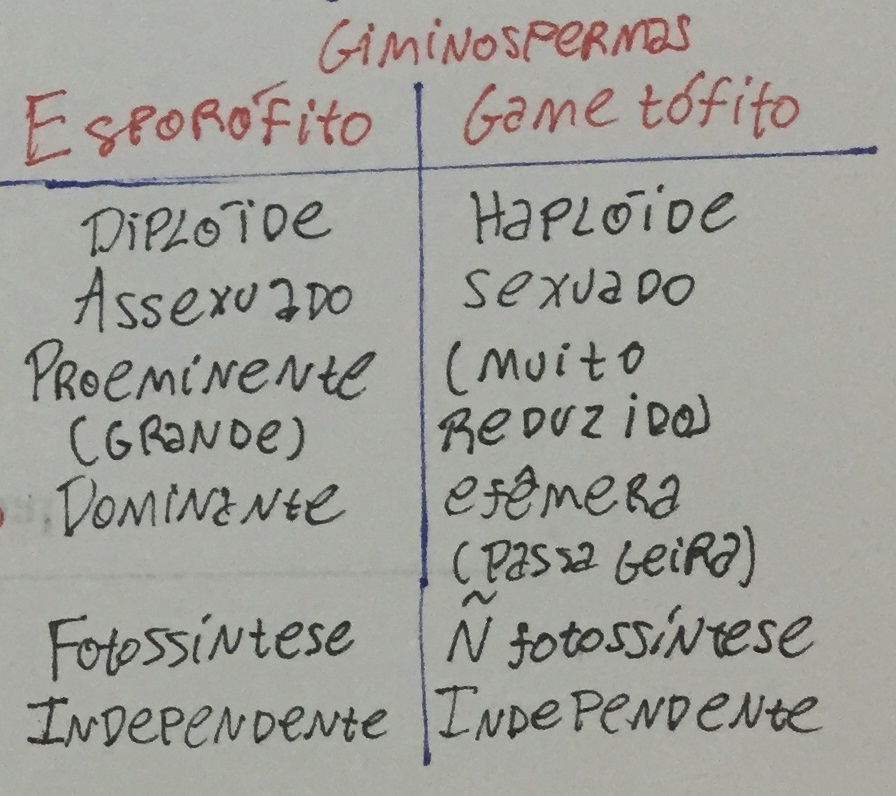 Giminospermas
Esporófito Gametófito
Diplóide Haplóide
Assexuado sexuado
Proeminente (muito
(Grande) Reduzido)
Dominante efêmera
(Passageira)
Fotossíntese Ñ fotossíntese
Independente Independente